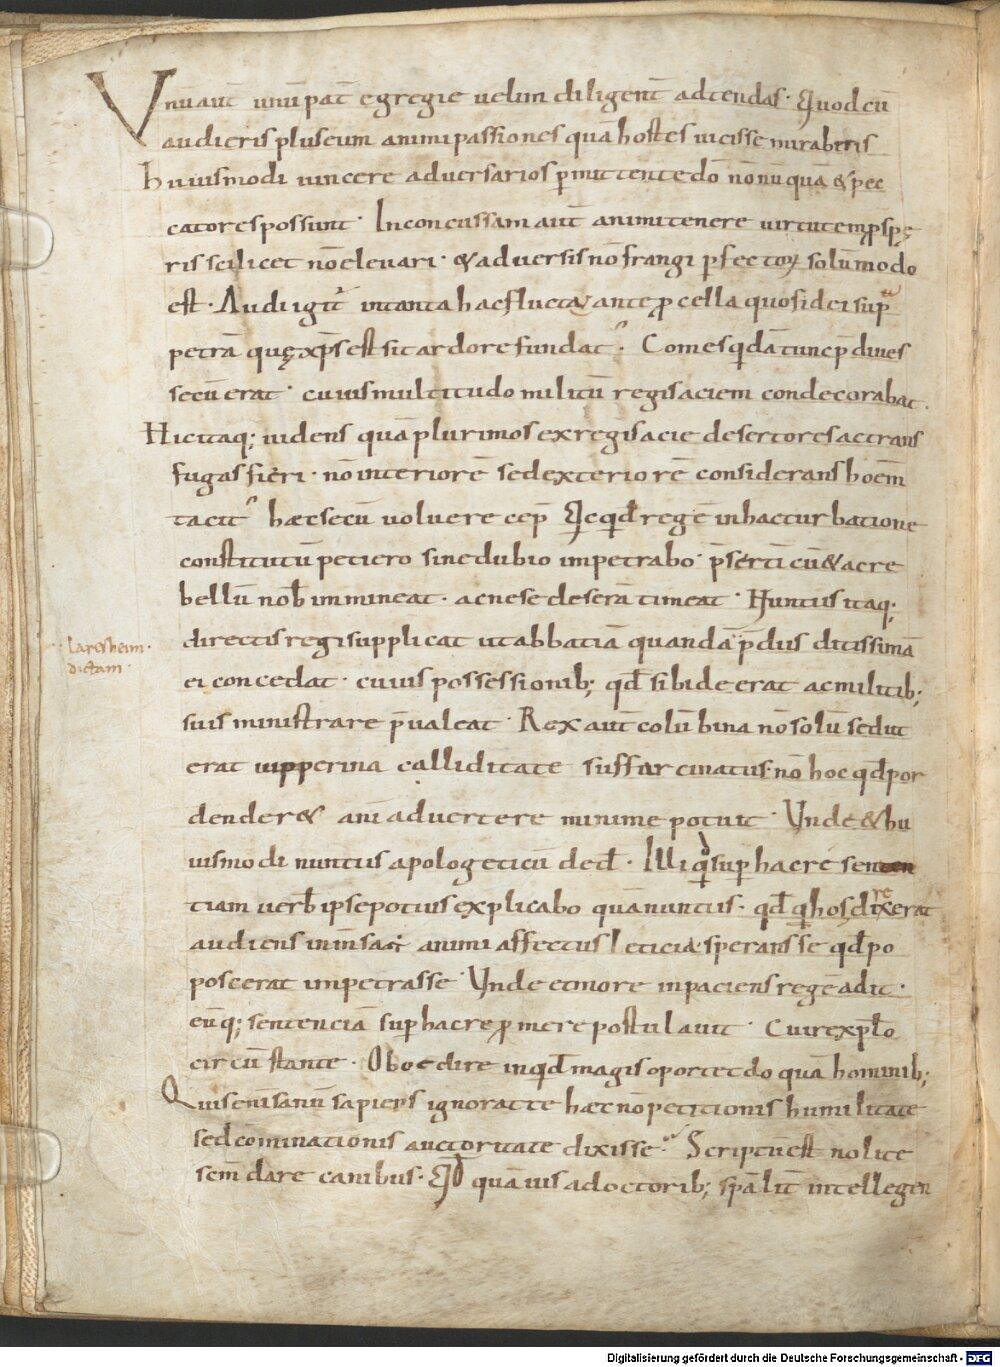 Vnu aut̄ unū pat̄ egregie uelim diligent̄ adtendas· Quod cū
audieris plus eum animi passiones quā hostes uicisse miraberis
huiusmodi uincere aduersarios p̄mittente dō nōnūquā & pec
catores possunt· Inconcussam aut̄ animi tenere uirtutem ꝓspę
ris scilicet nō eleuari· & aduersis nō frangi ꝑfectoꝝ solūmodo
est· Audi igit̄ in tanta hac fluctuante ꝓcella quo fidei sup̄
petrā quę xp̄s est sit ardore fundat᾽. Comes q̇dā tunc p̄diues
secū erat· cuius multitudo militū regis aciem condecorabat.
Hic itaq; uidens quā plurimos ex regis acie desertores ac trans
fugas fieri· nō interiorē sed exteriorē considerans hoēm
tacit᾽ haec secū uoluere cep̄ Qicqd̄ regē in hac turbatione
constitutū petiero sine dubio impetrabo· p̄sertī cū & acre
bellū nob̄ immineat· ac ne se deserā timeat· Nuntiis itaq;
directis regi supplicat ut abbatiā quandā p̄diis ditissimā
ei concedat· cuius possessionib; qd̄ sibi deerat ac militib;
suis ministrare p̄ualeat· Rex aut̄ colūbina nō solū sed ut
erat uipperina calliditate suffarcinatus· nō hoc qd̄ por
denderet animaduertere minime potuit· Unde & hu
uismodi nuntiis apologeticū ded̄· Illi q̇ sup̄ hac re senten
tiam uerb̄ ipse potius explicabo quā nuntius· qd̄ q̇ hos direxerat
audiens inmsaq; animi affectus leticia sperans se qd̄ po
poscerat impetrasse· Unde et more inpaciens regē adit·
eūq; sentenciā sup̄ hac re ꝓmere postulauit· Cui rex pl̄o
circū stante· Oboedire inqd̄ magis oportet dō quā hominib;
Quis enī sanū sapiens ignorat te haec nō petitionis humilitate
sed cōminationis auctoritate dixisse· Scriptū est nolite
sc̄m dare canibus· Qd̄ quāuis a doctorib; sp̄alit̄ intellegen
laresheim·
dictam·
Digitalisierung gefördert durch die Deutsche Forschungsgemeinschaft - DFG